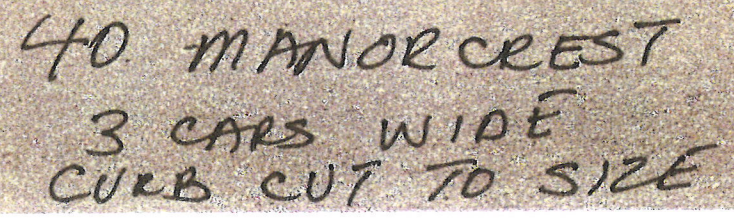 40 MANORCREST
3 CARS WIDE
CURB CUT TO SIZE